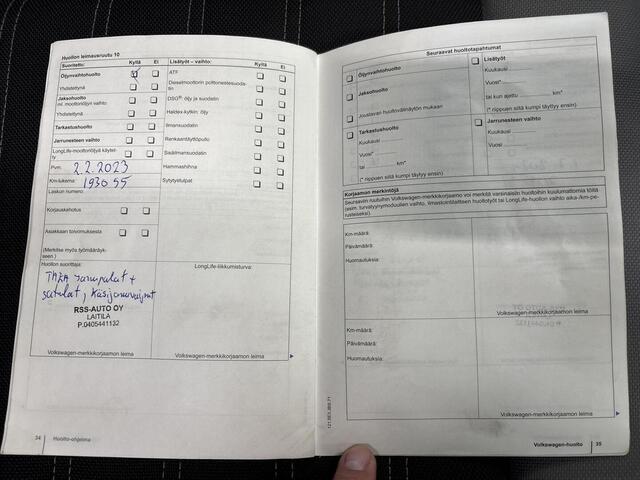 Huollon leimausruutu 10
Suoritettu: Kyllä Ei
Öljynvaihtohuolto
Yhdistettynä
Jaksohuolto
ml. moottoriöljyn vaihto
Yhdistettynä
Tarkastushuolto
Jarrunesteen vaihto
LongLife-moottoriöljyä käytet-
ty
Pvm: 2.2.2023
Km-lukema: 193055
Laskun numero:
Korjauskehotus
Asiakkaan toivomuksesta
(Merkitse myös työmääräyk-
seen.)
Huollon suorittaja:
TAKA jarrupalat +
satulat, käsijarruvaijerit
RSS-AUTO OY
LAITILA
P.0405441132
Volkswagen-merkkikorjaamon leima
Lisätyöt – vaihto: Kyllä Ei
ATF
Dieselmoottorin polttonestesuoda-
tin
DSG®: öljy ja suodatin
Haldex-kytkin: öljy
Ilmansuodatin
Renkaantäyttöpullo
Sisäilmansuodatin
Hammashihna
Sytytystulpat
LongLife-liikkumisturva:
Volkswagen-merkkikorjaamon leima
34 Huolto-ohjelma
Seuraavat huoltotapahtumat
Öljynvaihtohuolto
Jaksohuolto
Joustavan huoltovälinäytön mukaan
Tarkastushuolto
Kuukausi
Vuosi*
tai km*
(* riippuen siitä kumpi täyttyy ensin)
Lisätyöt
Kuukausi
Vuosi*
tai kun ajettu km*
(* riippuen siitä kumpi täyttyy ensin)
Jarrunesteen vaihto
Kuukausi
Vuosi
Korjaamon merkintöjä
Seuraaviin ruutuihin Volkswagen-merkkikorjaamo voi merkitä varsinaisiin huoltoihin kuulumattomia töitä
(esim. turvatyynymoduulien vaihto, ilmastointilaitteen huoltotyöt tai LongLife-huollon vaihto aika-/km-pe-
rusteiseksi).
Km-määrä:
Päivämäärä:
Huomautuksia:
Volkswagen-merkkikorjaamon leima
Km-määrä:
Päivämäärä:
Huomautuksia:
Volkswagen-merkkikorjaamon leima
Volkswagen-huolto 35